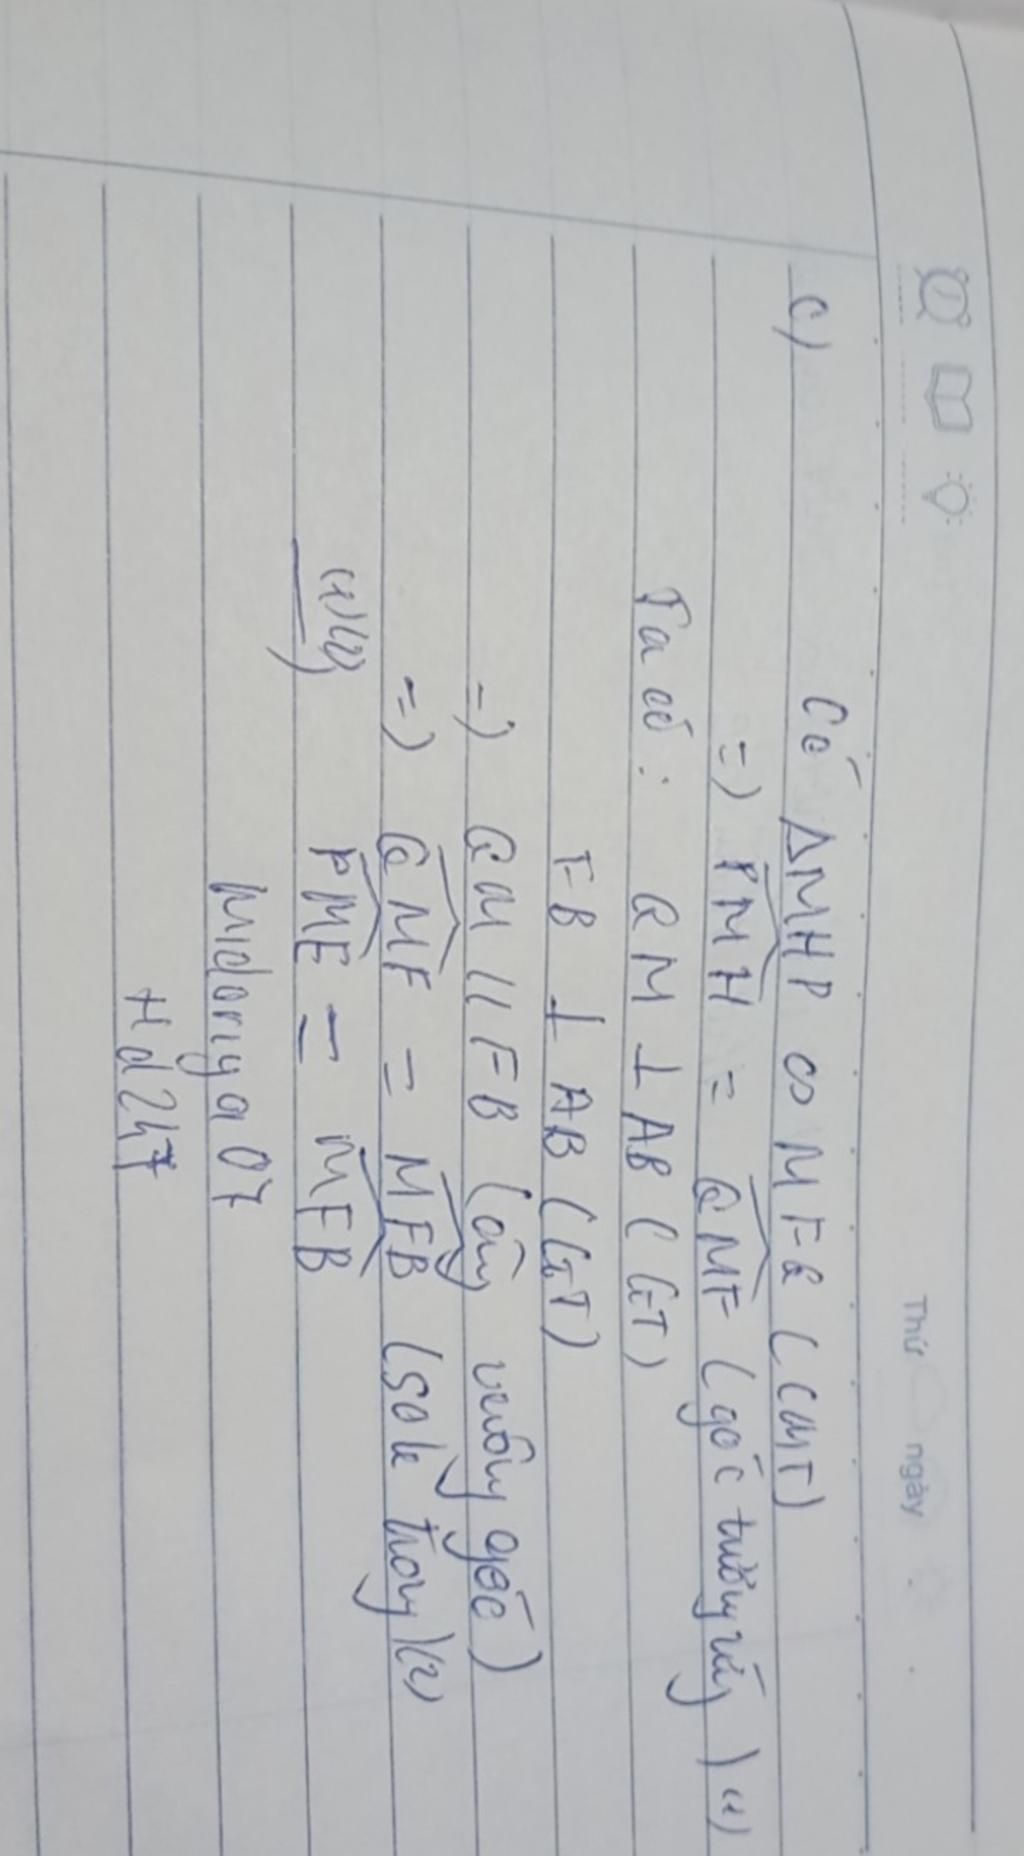 Thứ ngày
c) Có ΔMHP ∽ MFQ (CMT)
=) PMH = QMF (góc tương ứng) (1)
Ta có: QM ⊥ AB (GT)
FB ⊥ AB (GT)
=) QM // FB (cùng vuông góc)
=) QMF = MFB (sole trong) (2)
(1)(2) PME = MFB
Midoriya07
Hd247